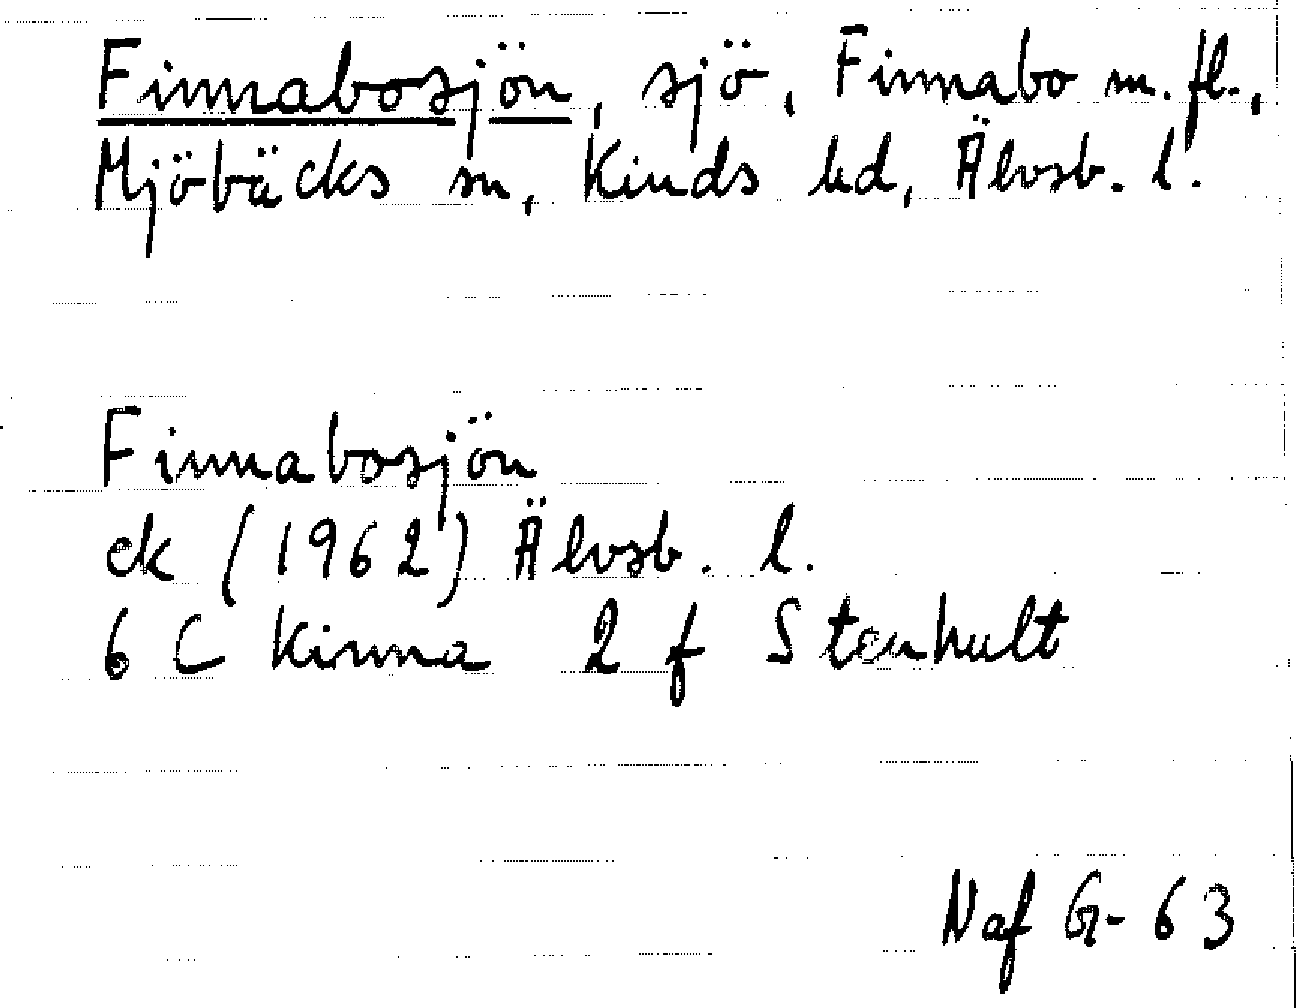 Finnabosjön, sjö, Finnabo m. fl.,
Mjöbäcks sn, Kinds hd, Älvsb. l.
Finnabosjön
ek (1962) Älvsb. l.
6 C Kinna 2 f Stenhult
Naf Gr- 63